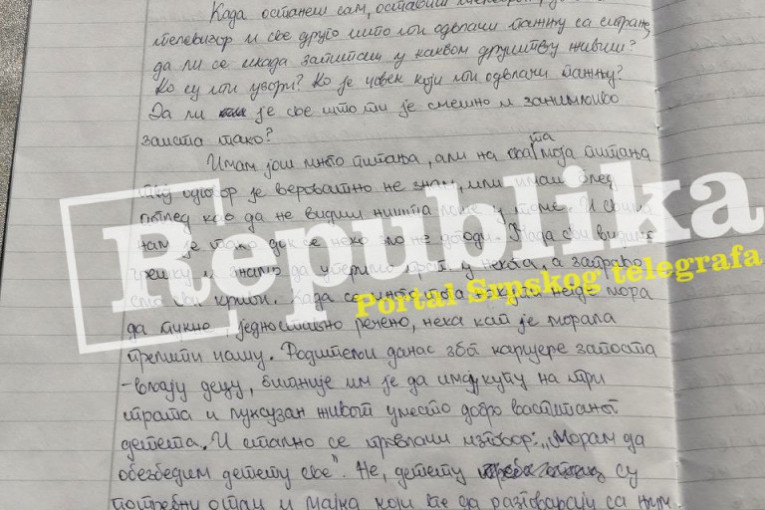 Када останеш сам, оставиш телефон,
телевизор и све друго што ти одвлачи пажњу са стране,
да ли се икада запиташ у каквом друштву живиш?
Ко су ти узори? Ко је човек који ти одвлачи пажњу?
Да ли је све што ти је смешно и занимљиво
заиста тако?
Имам још много питања, али на сва та моја питања
твој одговор је вероватно не знам, или имаш блед
поглед као да не видиш ништа лоше у томе. И свима
нам је тако док се неко зло не догоди. Тада сви видимо
грешку и знамо да уперимо прст у некога, а заправо
смо сви криви. Када се много тога негде мора
да пукне једноставно речено, нека кап је морала
прелити чашу. Родитељи данас због каријере запоста
-вљају децу, битније им је да имају кућу на три
спрата и луксузан живот уместо добро васпитаног
детета. И стално се провлачи изговор: „Морам да
обезбедим детету све". Не, детету су
потребни отац и мајка који ће да разговарају са њим.
Republika
Portal Srpskog telegrafa